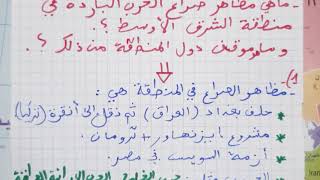 ماهي مظاهر صراع الحرب الباردة في
منطقة الشرق الأوسط؟.
وما موقف دول المنطقة من ذلك؟.
1) - مظاهر الصراع في المنطقة هي:
* حلف بغداد (العراق) ثم نقل إلى أنقرة (تركيا)
* مشروع ايزنهاور + ترومان.
* أزمة السويس في مصر.